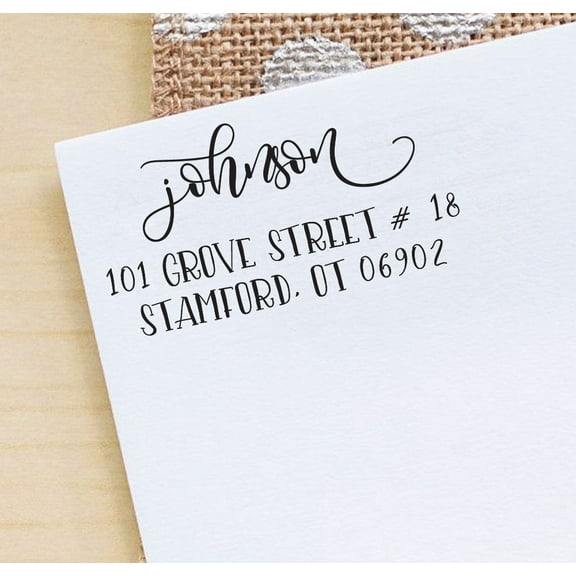 johnson
101 GROVE STREET # 18
STAMFORD, OT 06902